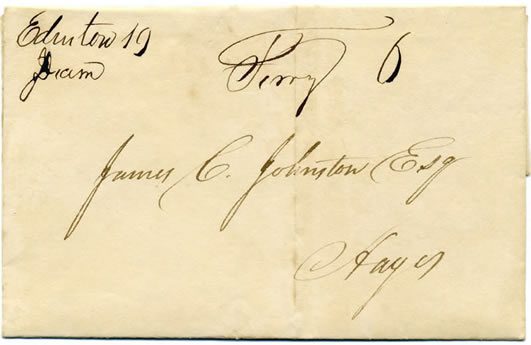 Edenton 19
Ferry 6
James C. Johnston Esq
Hayes